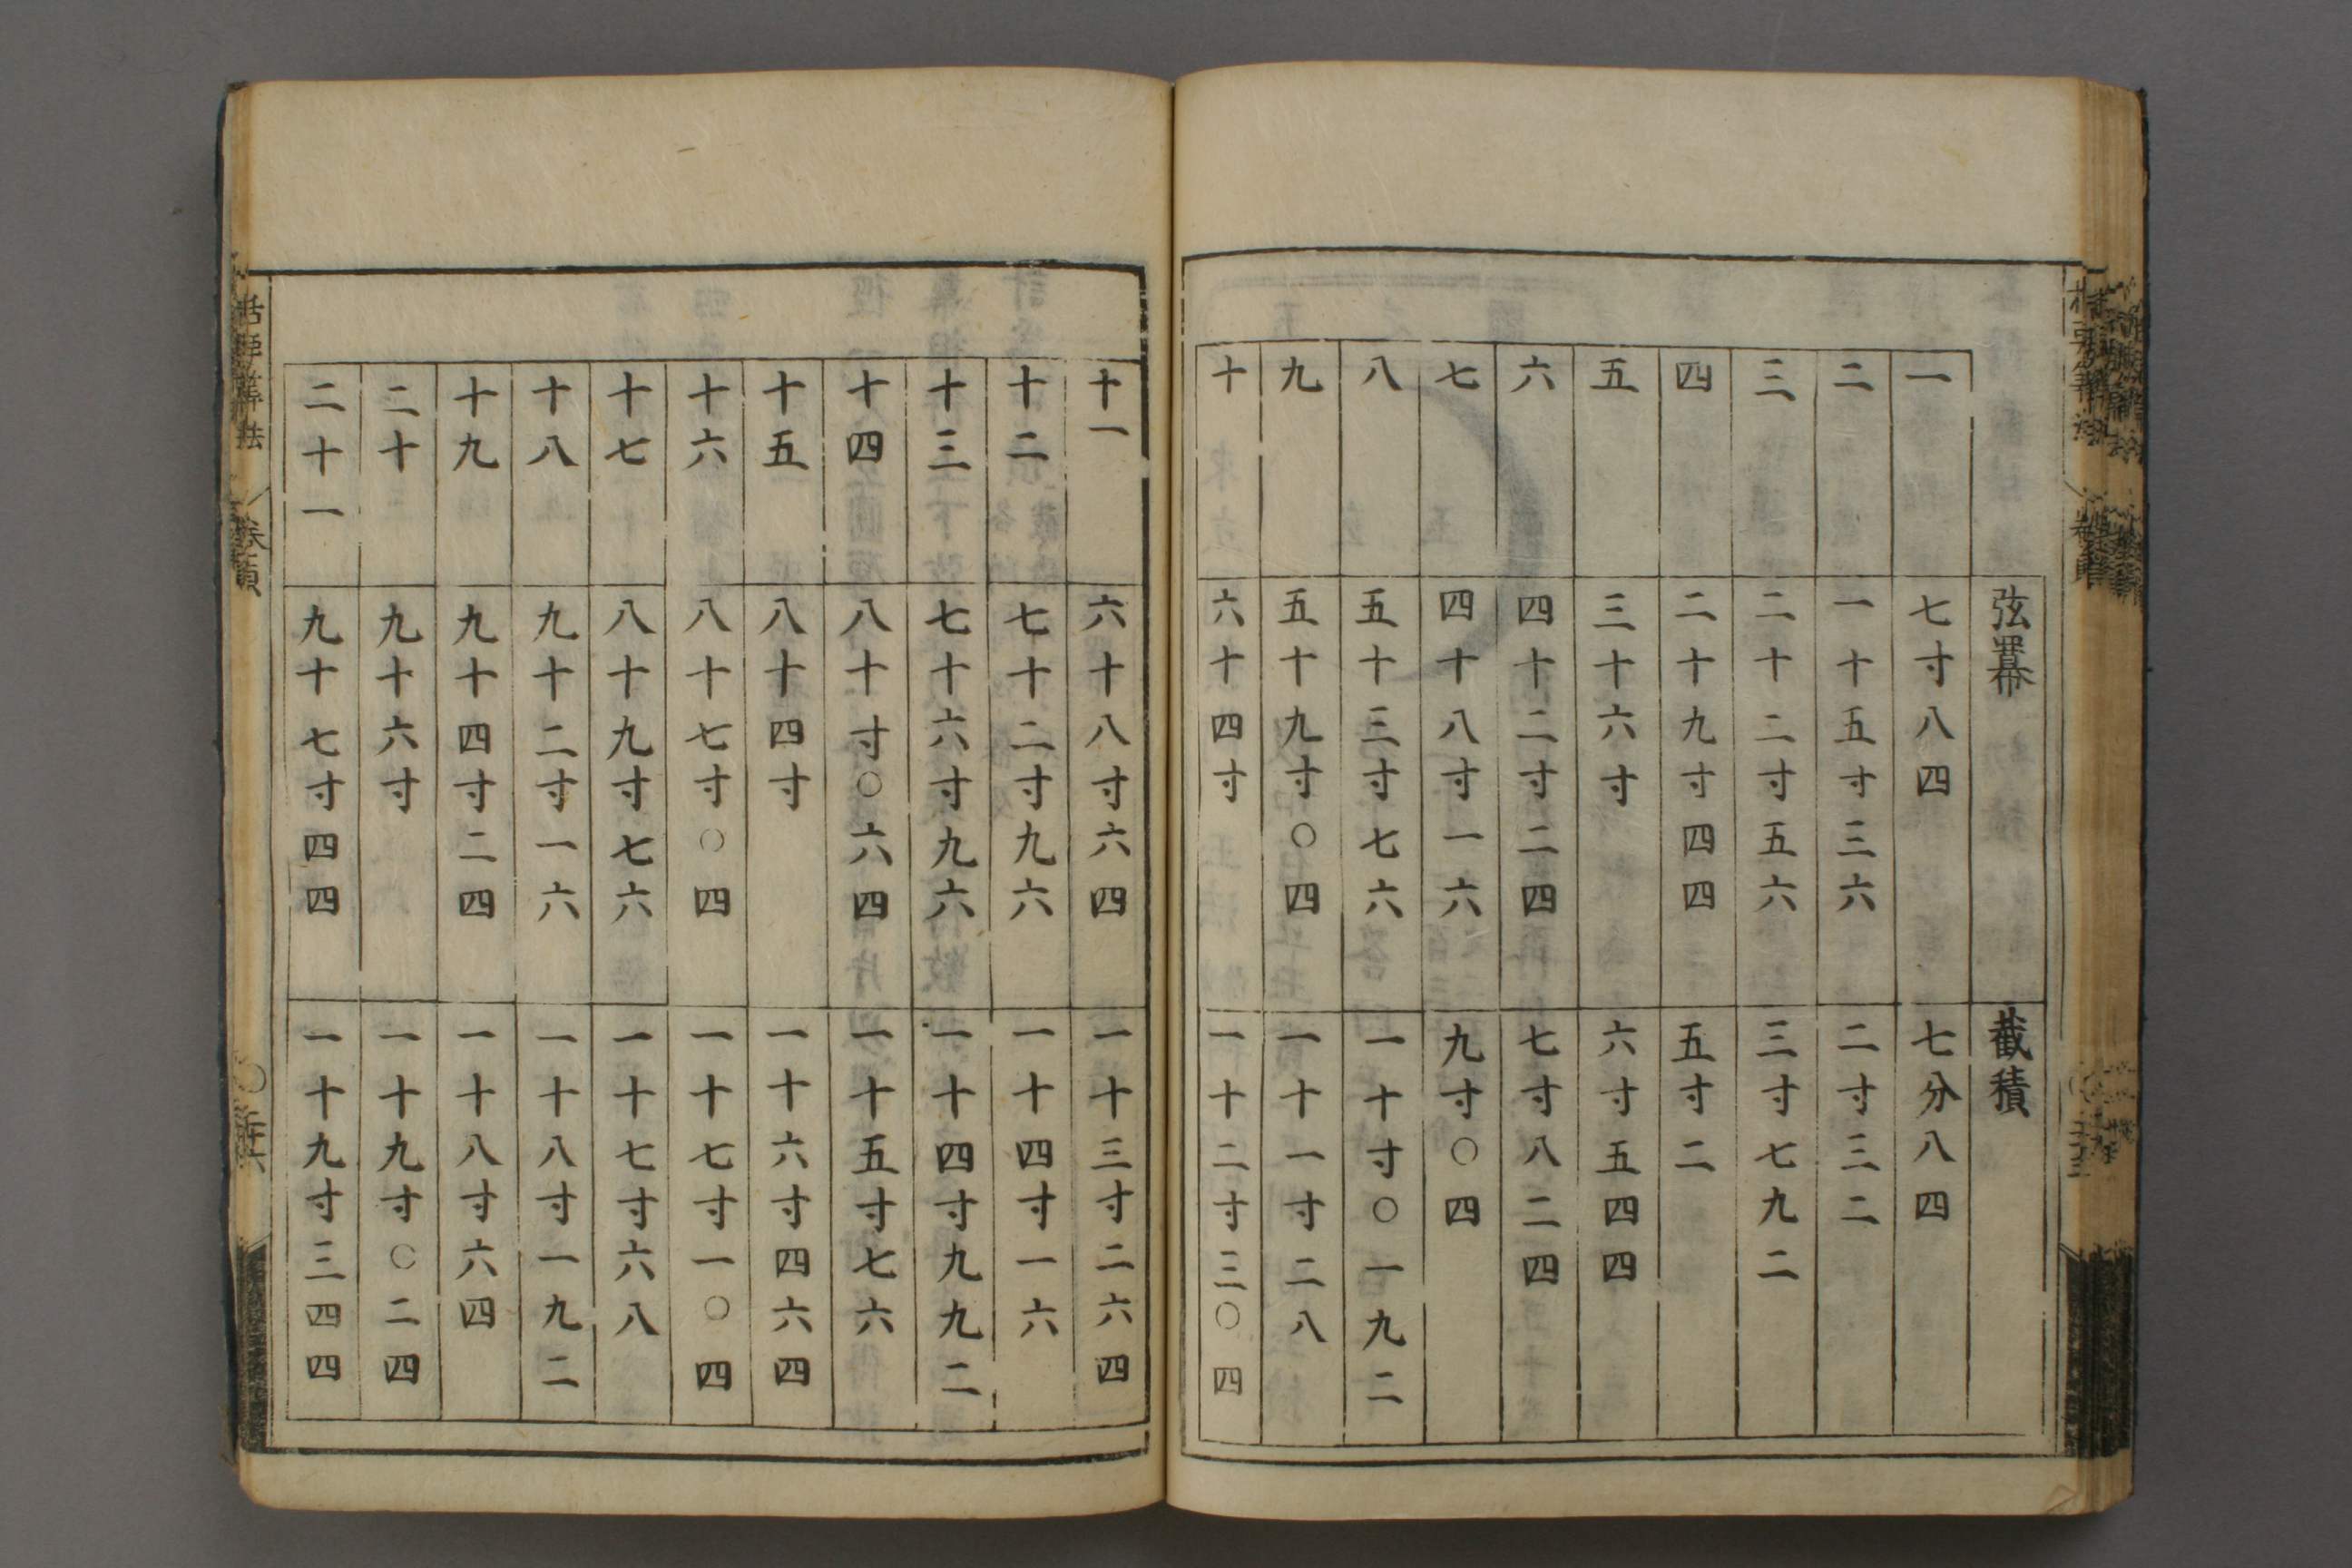 弦羃 截積
一 七寸八四 七分八四
二 一十五寸三六 二寸三二
三 二十二寸五六 三寸七九二
四 二十九寸四四 五寸二
五 三十六寸 六寸五四四
六 四十二寸二四 七寸八二四
七 四十八寸一六 九寸〇四
八 五十三寸七六 一十寸〇一九二
九 五十九寸〇四 一十一寸二八
十 六十四寸 一十二寸三〇四
十一 六十八寸六四 一十三寸二六四
十二 七十二寸九六 一十四寸一六
十三 七十六寸九六 一十四寸九九二
十四 八十寸〇六四 一十五寸七六
十五 八十四寸 一十六寸四六四
十六 八十七寸〇四 一十七寸一〇四
十七 八十九寸七六 一十七寸六八
十八 九十二寸一六 一十八寸一九二
十九 九十四寸二四 一十八寸六四
二十 九十六寸 一十九寸〇二四
二十一 九十七寸四四 一十九寸三四四
括要算法 卷貞